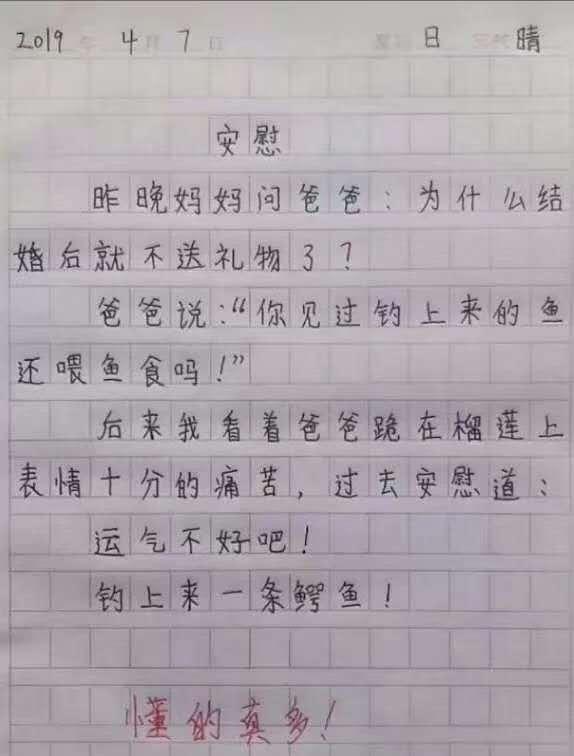 2019 年 4 月 7 日 星期 日 天气 晴
安慰
昨晚妈妈问爸爸：为什么结
婚后就不送礼物了？
爸爸说：“你见过钓上来的鱼
还喂鱼食吗！”
后来我看着爸爸跪在榴莲上
表情十分的痛苦，过去安慰道：
运气不好吧！
钓上来一条鳄鱼！
懂的真多！